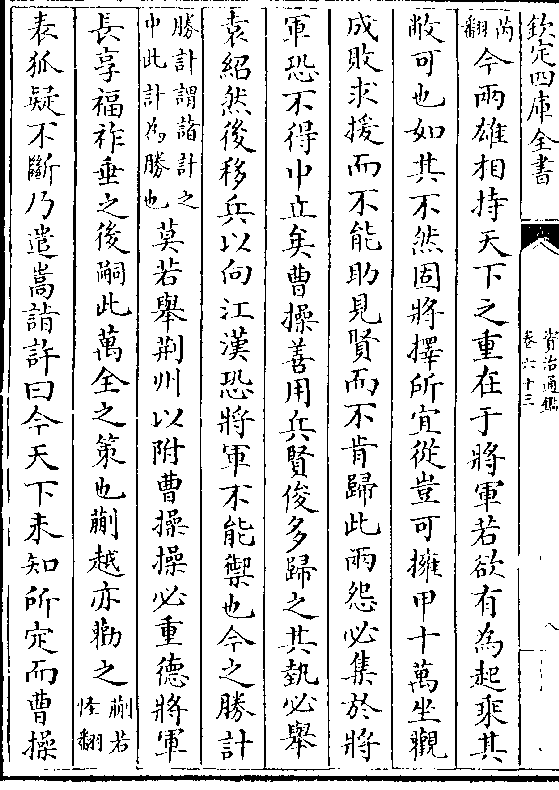 欽定四庫全書
資治通鑑
卷六十三
八
芮
翻今兩雄相持天下之重在于將軍若欲有為起乘其
敝可也如其不然固將擇所宜從豈可擁甲十萬坐觀
成敗求援而不能助見賢而不肯歸此兩怨必集於將
軍恐不得中立矣曹操善用兵賢俊多歸之其埶必舉
袁紹然後移兵以向江漢恐將軍不能禦也今之勝計
勝計謂諸計之
中此計為勝也莫若舉荆州以附曹操操必重德將軍
長享福祚垂之後嗣此萬全之策也蒯越亦勸之蒯若
怪翻
表狐疑不斷乃遣嵩詣許曰今天下未知所定而曹操